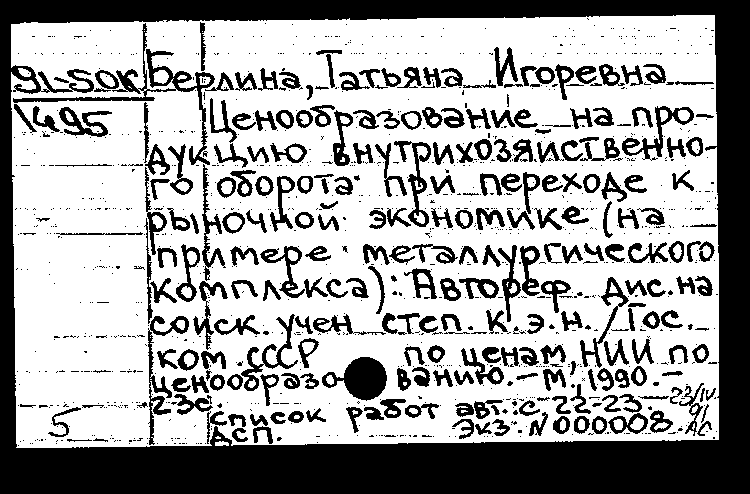 91-5ОК Берлина, Татьяна Игоревна
1495 Ценообразование на про-
дукцию внутрихозяйственно-
го оборота при переходе к
рыночной экономике (на
примере металлургического
комплекса): Автореф. дис. на
соиск. учен степ. к.э.н. / Гос.
ком. СССР по ценам, НИИ по
ценообразо- ванию. – М., 1990. –
23с.
список работ авт.: с. 22-23. 23/IV
ДСП. Экз. N 000008. 91
5 АС